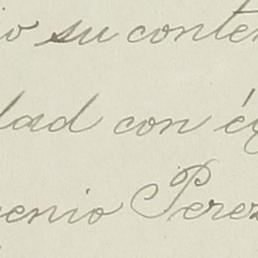 io su conte
dad con é
enio Perez